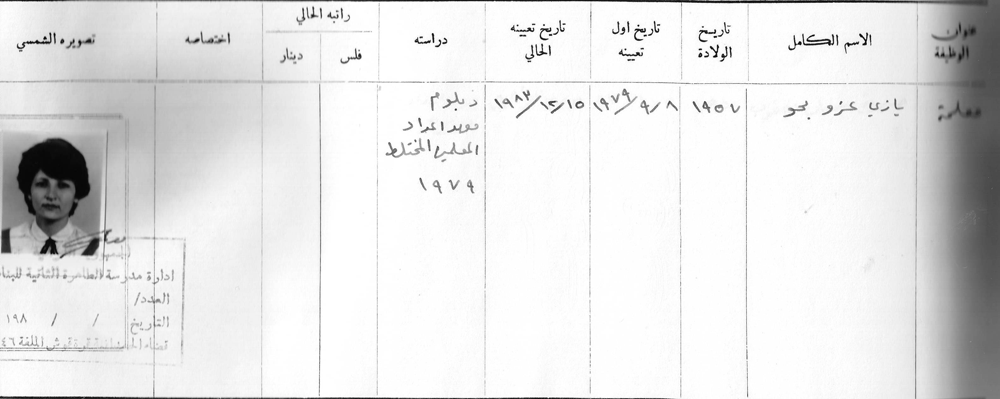 عنوان الوظيفة
الاسم الكامل
تاريخ الولادة
تاريخ اول تعيينه
تاريخ تعيينه الحالي
دراسته
راتبه الحالي
فلس
دينار
اختصاصه
تصويره الشمسي
معلمة
يازي عزو بحو
١٩٥٧
١٩٧٩/٩/٨
١٩٨٢/١٢/١٥
دبلوم
معهد اعداد
المعلمين المختلط
١٩٧٩
ادارة مدرسة الطاهرة الثانية للبنات
العدد/
التاريخ / / ١٩٨
قضاء الحمدانية قره قوش الملفة ٤٦